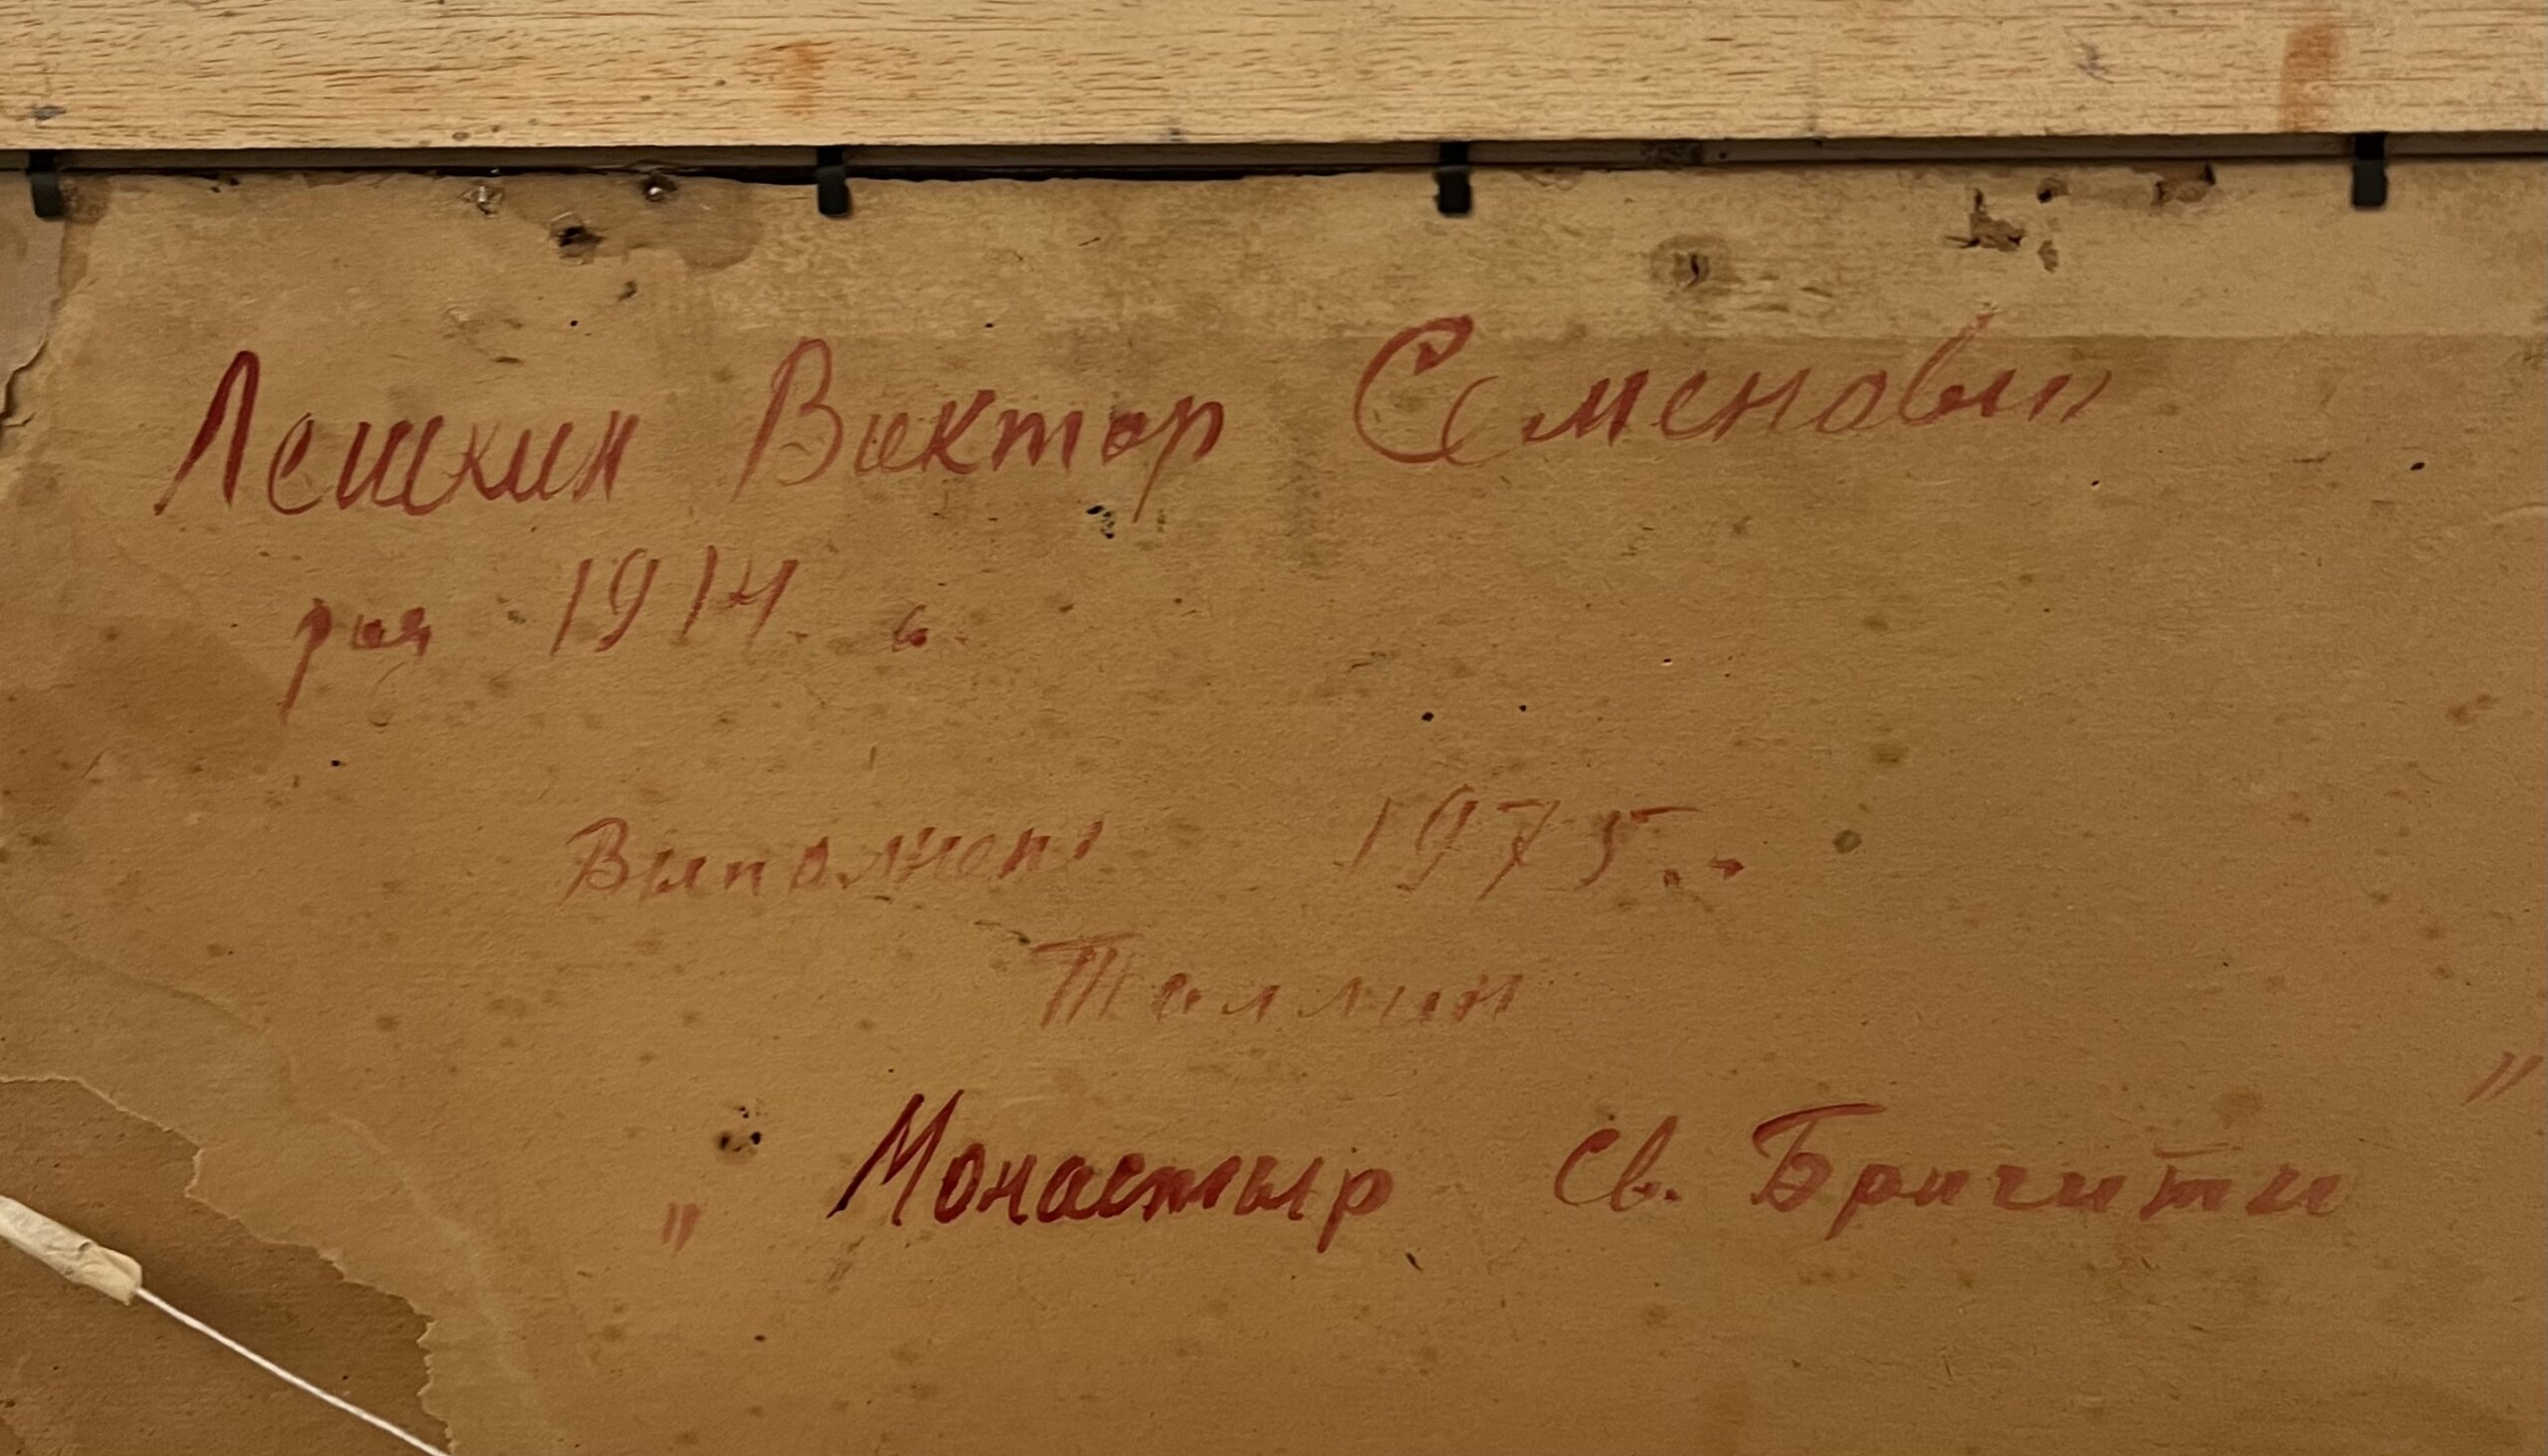 Лешкин Виктор Семенович
1914. г.
Выполнен 1975 г.
Таллин
„Монастыр Св. Бригитты"